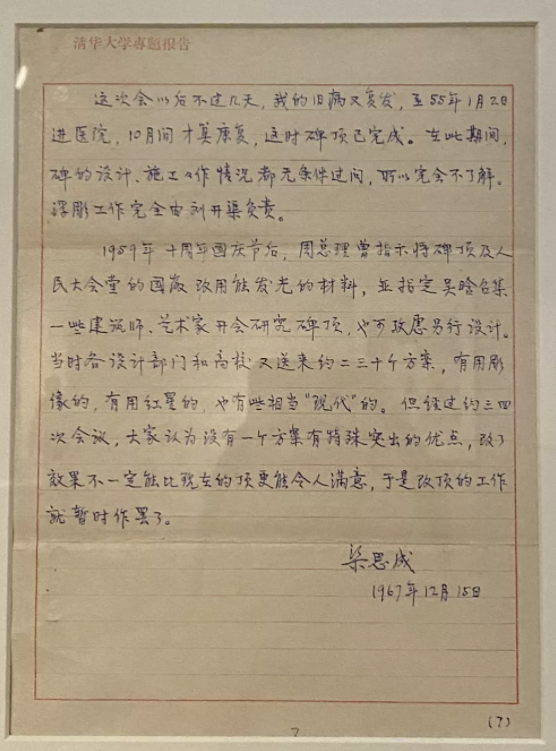 清华大学專題报告
这次会以后不过几天，我的旧病又复发，至55年1月2日
进医院，10月间才算康复，这时碑顶已完成。在此期间，
碑的设计、施工工作情况都无条件过问，所以完全不了解。
浮雕工作完全由刘开渠负责。
1959年十周年国庆节后，周总理曾指示将碑顶及人
民大会堂的国徽改用能发光的材料，並指定吴晗召集
一些建筑师、艺术家开会研究碑顶，也可改虑另行设计。
当时各设计部门和高校又送来约二三十个方案，有用雕
像的，有用红星的，也有些相当“现代”的。但经过约三四
次会议，大家认为没有一个方案有特殊突出的优点，改了
效果不一定能比现在的顶更能令人满意，于是改顶的工作
就暂时作罢了。
梁思成
1967年12月15日
(7)
7